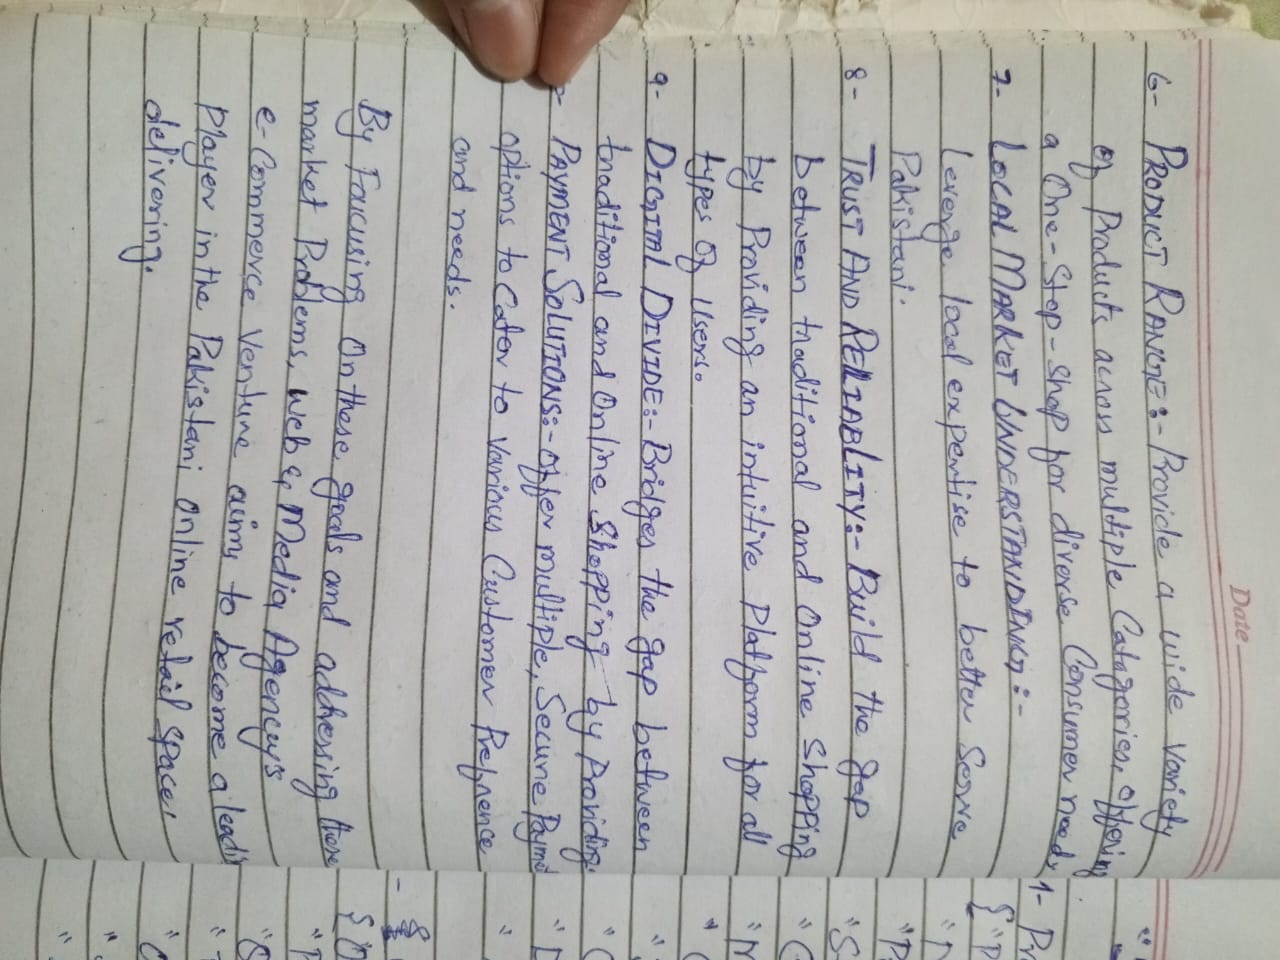 Date
6- PRODUCT RANGE:- Provide a wide variety
of Products across multiple Catagories, offering
a One-Stop-Shop for diverse Consumer needs
7- LOCAL MARKET UNDERSTANDING:-
Leverge local expertise to better Serve
Pakistani.
8- TRUST AND RELIABLITY:- Build the gap
between traditional and Online Shopping
by Providing an intuitive Platform for all
types of Users.
9- DIGITAL DIVIDE:- Bridges the gap between
traditional and Online Shopping by Providing.
PAYMENT SOLUTIONS:- Offer multiple, Secure Payme
options to Cater to Various Customer Prefrence
and needs.
By Foucusing On these goals and addressing these
market Problems, Web & Media Agency's
e-Commerce Venture aims to become a leadi
Player in the Pakistani Online retail Space,
delivering.
1- Pr
{"P